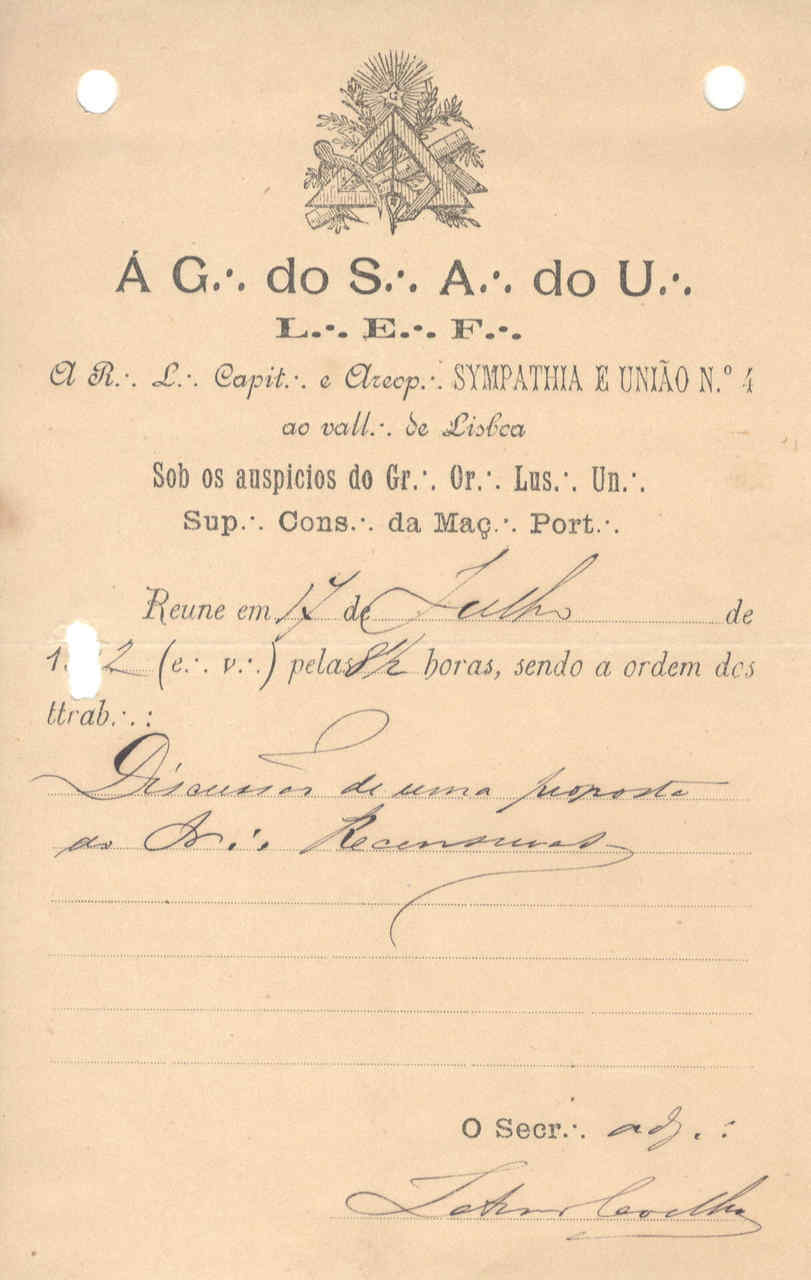 G
Á G.·. do S.·. A.·. do U.·.
L.·. E.·. F.·.
A R.·. L.·. Capit.·. e Areop.·. SYMPATHIA E UNIÃO N.º 4
ao vall.·. de Lisboa
Sob os auspicios do Gr.·. Or.·. Lus.·. Un.·.
Sup.·. Cons.·. da Maç.·. Port.·.
Reune em 17 de Julho de
1 2 (e.·. v.·.) pelas 8 1/2 horas, sendo a ordem dos
ttrab.·.:
Discussão de uma proposta
do Ir.·.
O Secr.·. adj.:
Coelho